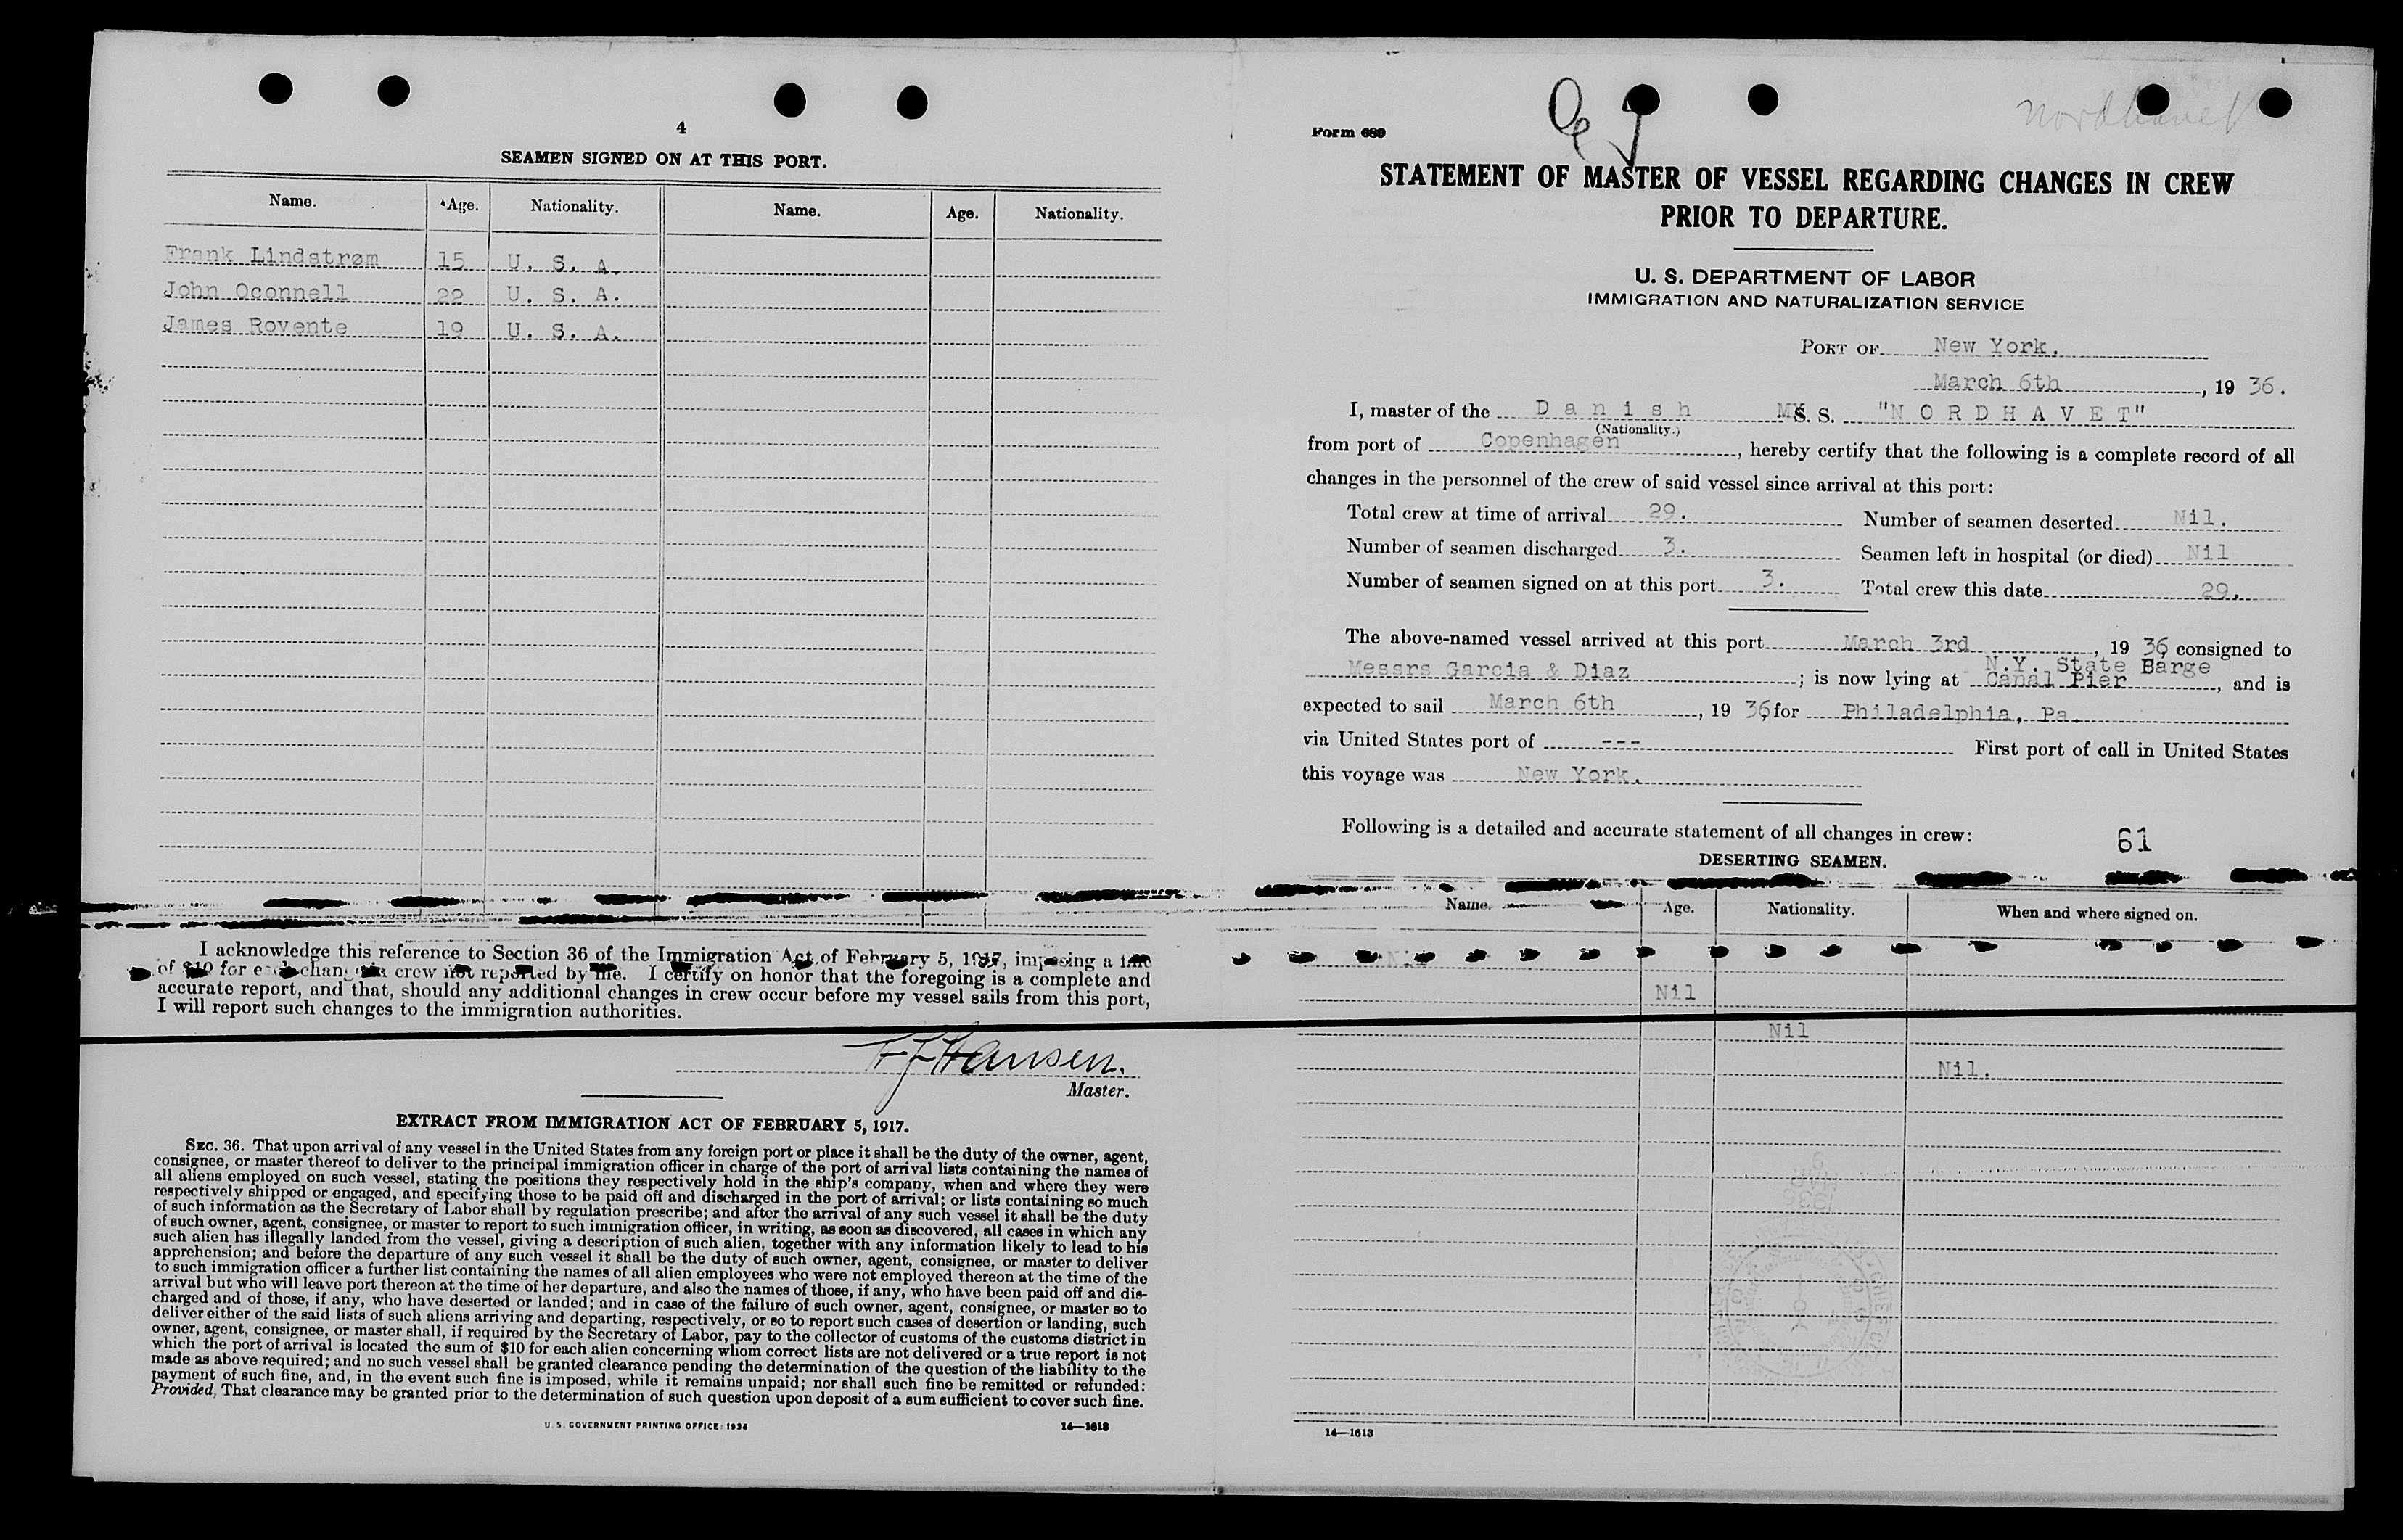 4
SEAMEN SIGNED ON AT THIS PORT.
Name. Age. Nationality. Name. Age. Nationality.
Frank Lindstrøm 15 U. S. A.
John Oconnell 22 U. S. A.
James Rovente 19 U. S. A.
I acknowledge this reference to Section 36 of the Immigration Act of February 5, 1917, imposing a fine
of $10 for each change in crew not reported by me. I certify on honor that the foregoing is a complete and
accurate report, and that, should any additional changes in crew occur before my vessel sails from this port,
I will report such changes to the immigration authorities.
Hansen.
Master.
EXTRACT FROM IMMIGRATION ACT OF FEBRUARY 5, 1917.
SEC. 36. That upon arrival of any vessel in the United States from any foreign port or place it shall be the duty of the owner, agent,
consignee, or master thereof to deliver to the principal immigration officer in charge of the port of arrival lists containing the names of
all aliens employed on such vessel, stating the positions they respectively hold in the ship's company, when and where they were
respectively shipped or engaged, and specifying those to be paid off and discharged in the port of arrival; or lists containing so much
of such information as the Secretary of Labor shall by regulation prescribe; and after the arrival of any such vessel it shall be the duty
of such owner, agent, consignee, or master to report to such immigration officer, in writing, as soon as discovered, all cases in which any
such alien has illegally landed from the vessel, giving a description of such alien, together with any information likely to lead to his
apprehension; and before the departure of any such vessel it shall be the duty of such owner, agent, consignee, or master to deliver
to such immigration officer a further list containing the names of all alien employees who were not employed thereon at the time of the
arrival but who will leave port thereon at the time of her departure, and also the names of those, if any, who have been paid off and dis-
charged and of those, if any, who have deserted or landed; and in case of the failure of such owner, agent, consignee, or master so to
deliver either of the said lists of such aliens arriving and departing, respectively, or so to report such cases of desertion or landing, such
owner, agent, consignee, or master shall, if required by the Secretary of Labor, pay to the collector of customs of the customs district in
which the port of arrival is located the sum of $10 for each alien concerning whom correct lists are not delivered or a true report is not
made as above required; and no such vessel shall be granted clearance pending the determination of the question of the liability to the
payment of such fine, and, in the event such fine is imposed, while it remains unpaid; nor shall such fine be remitted or refunded:
Provided, That clearance may be granted prior to the determination of such question upon deposit of a sum sufficient to cover such fine.
U. S. GOVERNMENT PRINTING OFFICE: 1934 14—1613
Nordhavet
Form 689
STATEMENT OF MASTER OF VESSEL REGARDING CHANGES IN CREW
PRIOR TO DEPARTURE.
U. S. DEPARTMENT OF LABOR
IMMIGRATION AND NATURALIZATION SERVICE
PORT OF New York.
March 6th, 19 36.
I, master of the Danish M S. S. "NORDHAVET"
(Nationality.)
from port of Copenhagen, hereby certify that the following is a complete record of all
changes in the personnel of the crew of said vessel since arrival at this port:
Total crew at time of arrival 29. Number of seamen deserted Nil.
Number of seamen discharged 3. Seamen left in hospital (or died) Nil
Number of seamen signed on at this port 3. Total crew this date 29.
The above-named vessel arrived at this port March 3rd, 19 36 consigned to
N.Y. State Barge
Messrs Garcia & Diaz; is now lying at Canal Pier, and is
expected to sail March 6th, 19 36, for Philadelphia, Pa.
via United States port of --- First port of call in United States
this voyage was New York.
Following is a detailed and accurate statement of all changes in crew: 61
DESERTING SEAMEN.
Name. Age. Nationality. When and where signed on.
Nil
Nil
Nil
Nil.
14—1613